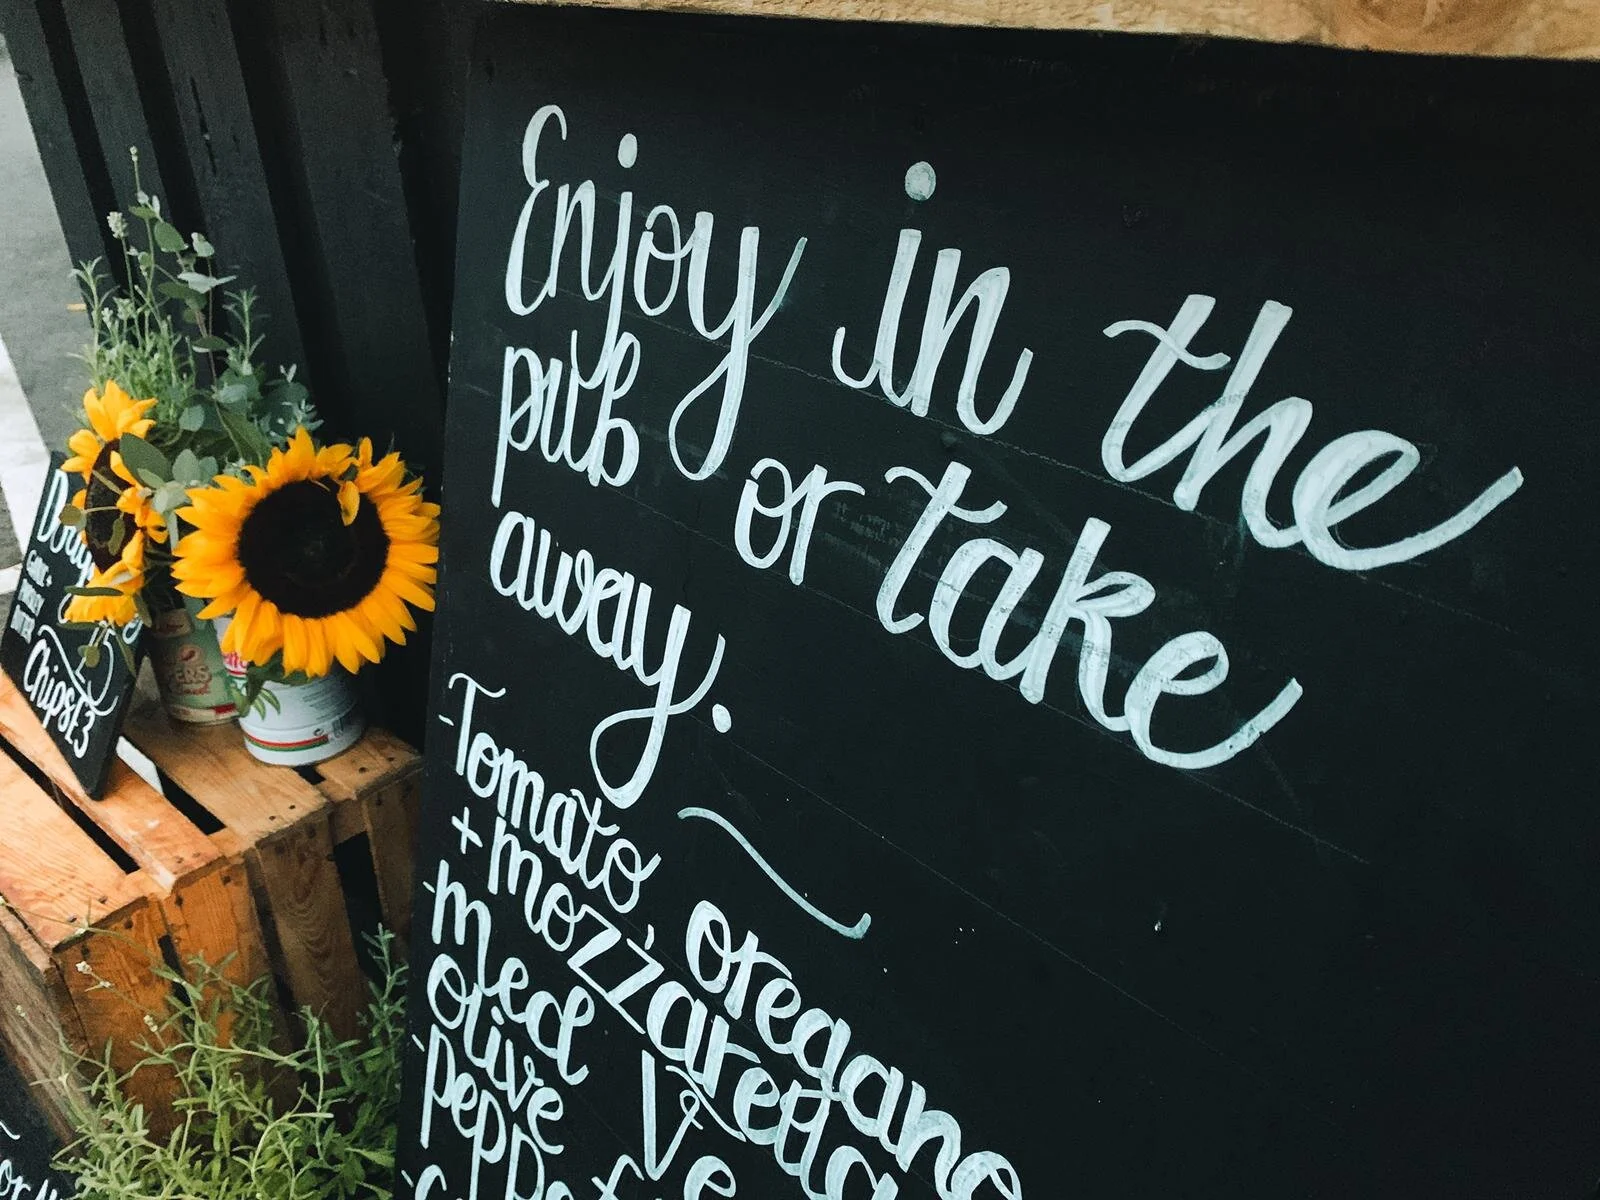 Enjoy in the
pub or take
away.
-Tomato, oregano
+ mozzarella
-med Ve
olive
-pepp
Chips £3